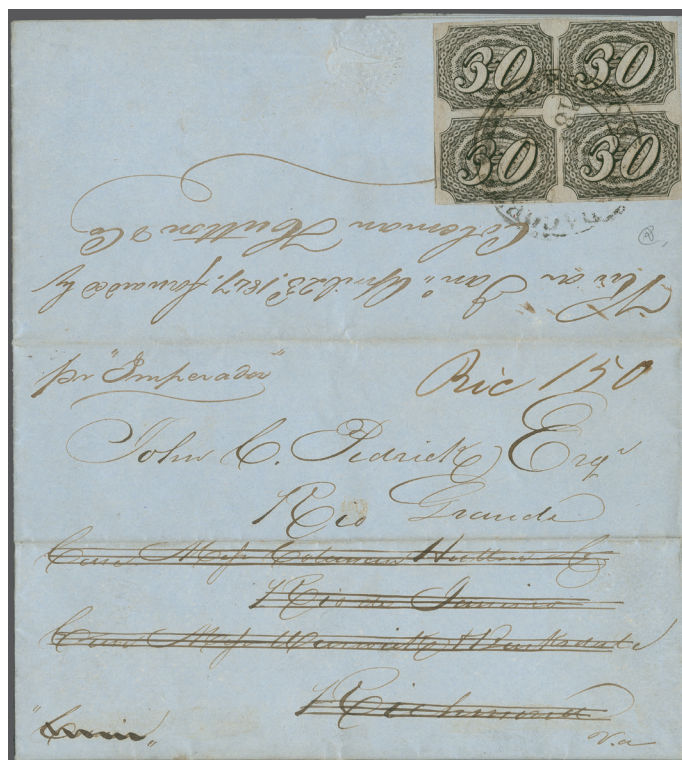 30 30
30 30
Rio Jan.º April 23d, 1847, forwarded by
Coleman Hutton & Co
pr "Imperador"
Ric 150
John C. Pedrick Esqr
Rio Grande
Care Mess Coleman Hutton & Co
Rio de Janeiro
Care Mess Warwick & Barksdale
Richmond
Va